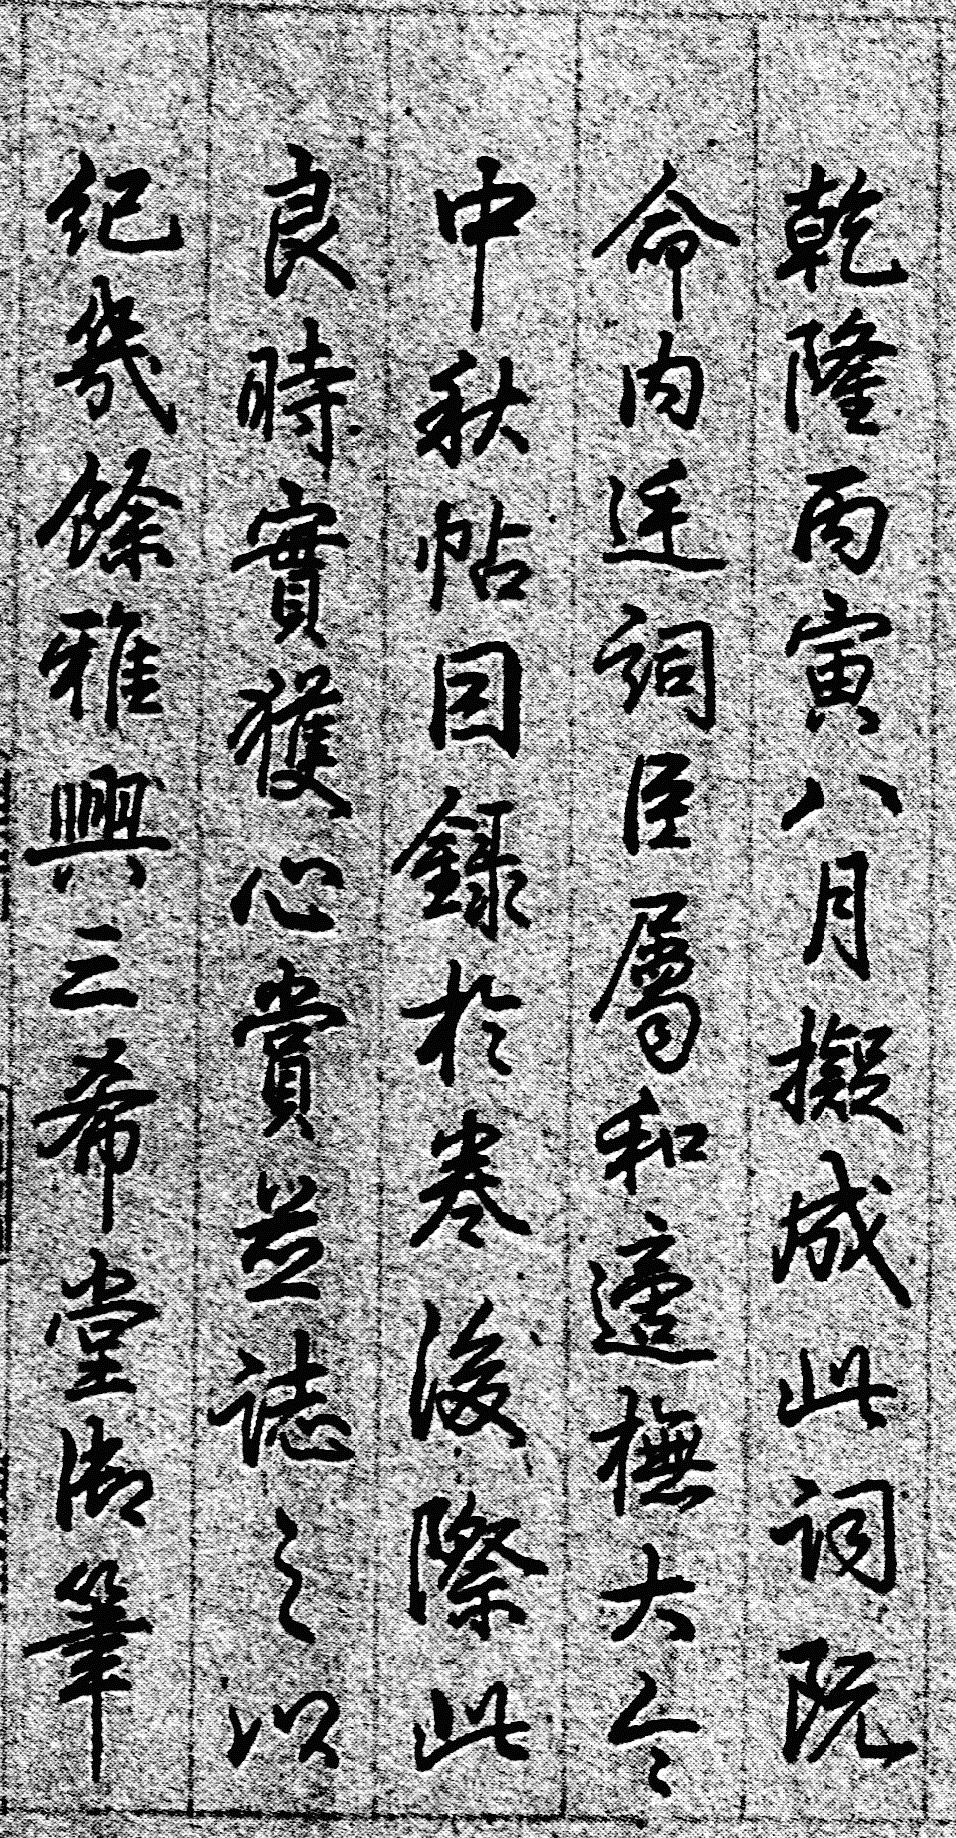 乾隆丙寅八月擬成此詞既
命內廷詞臣屬和適橅大令
中秋帖因錄於卷後際此
良時實獲心賞並誌之以
紀幾餘雅興三希堂御筆